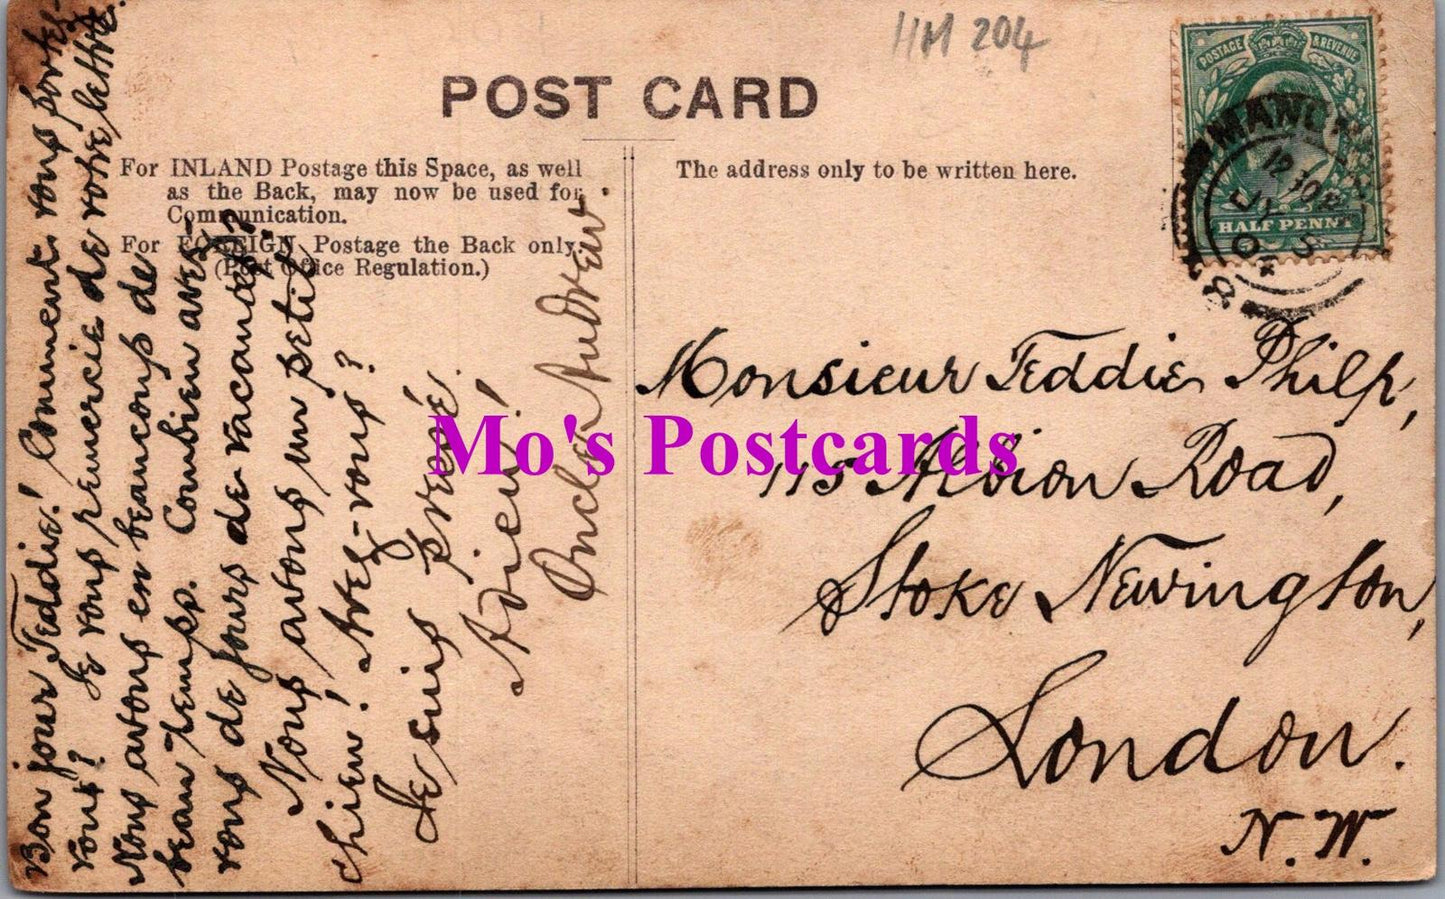 HM 204
POST CARD
For INLAND Postage this Space, as well
as the Back, may now be used for
Communication.
For FOREIGN Postage the Back only.
(Post Office Regulation.)
The address only to be written here.
POSTAGE & REVENUE
HALF PENNY
MANCHESTER
JY 8
Bon jour Teddie! Comment vous portez-
vous? Je vous remercie de votre lettre.
Nous avons en beaucoup de
beau temps. Combien avez-
vous de jours de vacances?
Nous avons un petit
chien! Avez-vous?
Je suis
Adieu!
Oncle Andrew.
Monsieur Teddie Philp,
113 Albion Road,
Stoke Newington,
London.
N.W.
Mo's Postcards